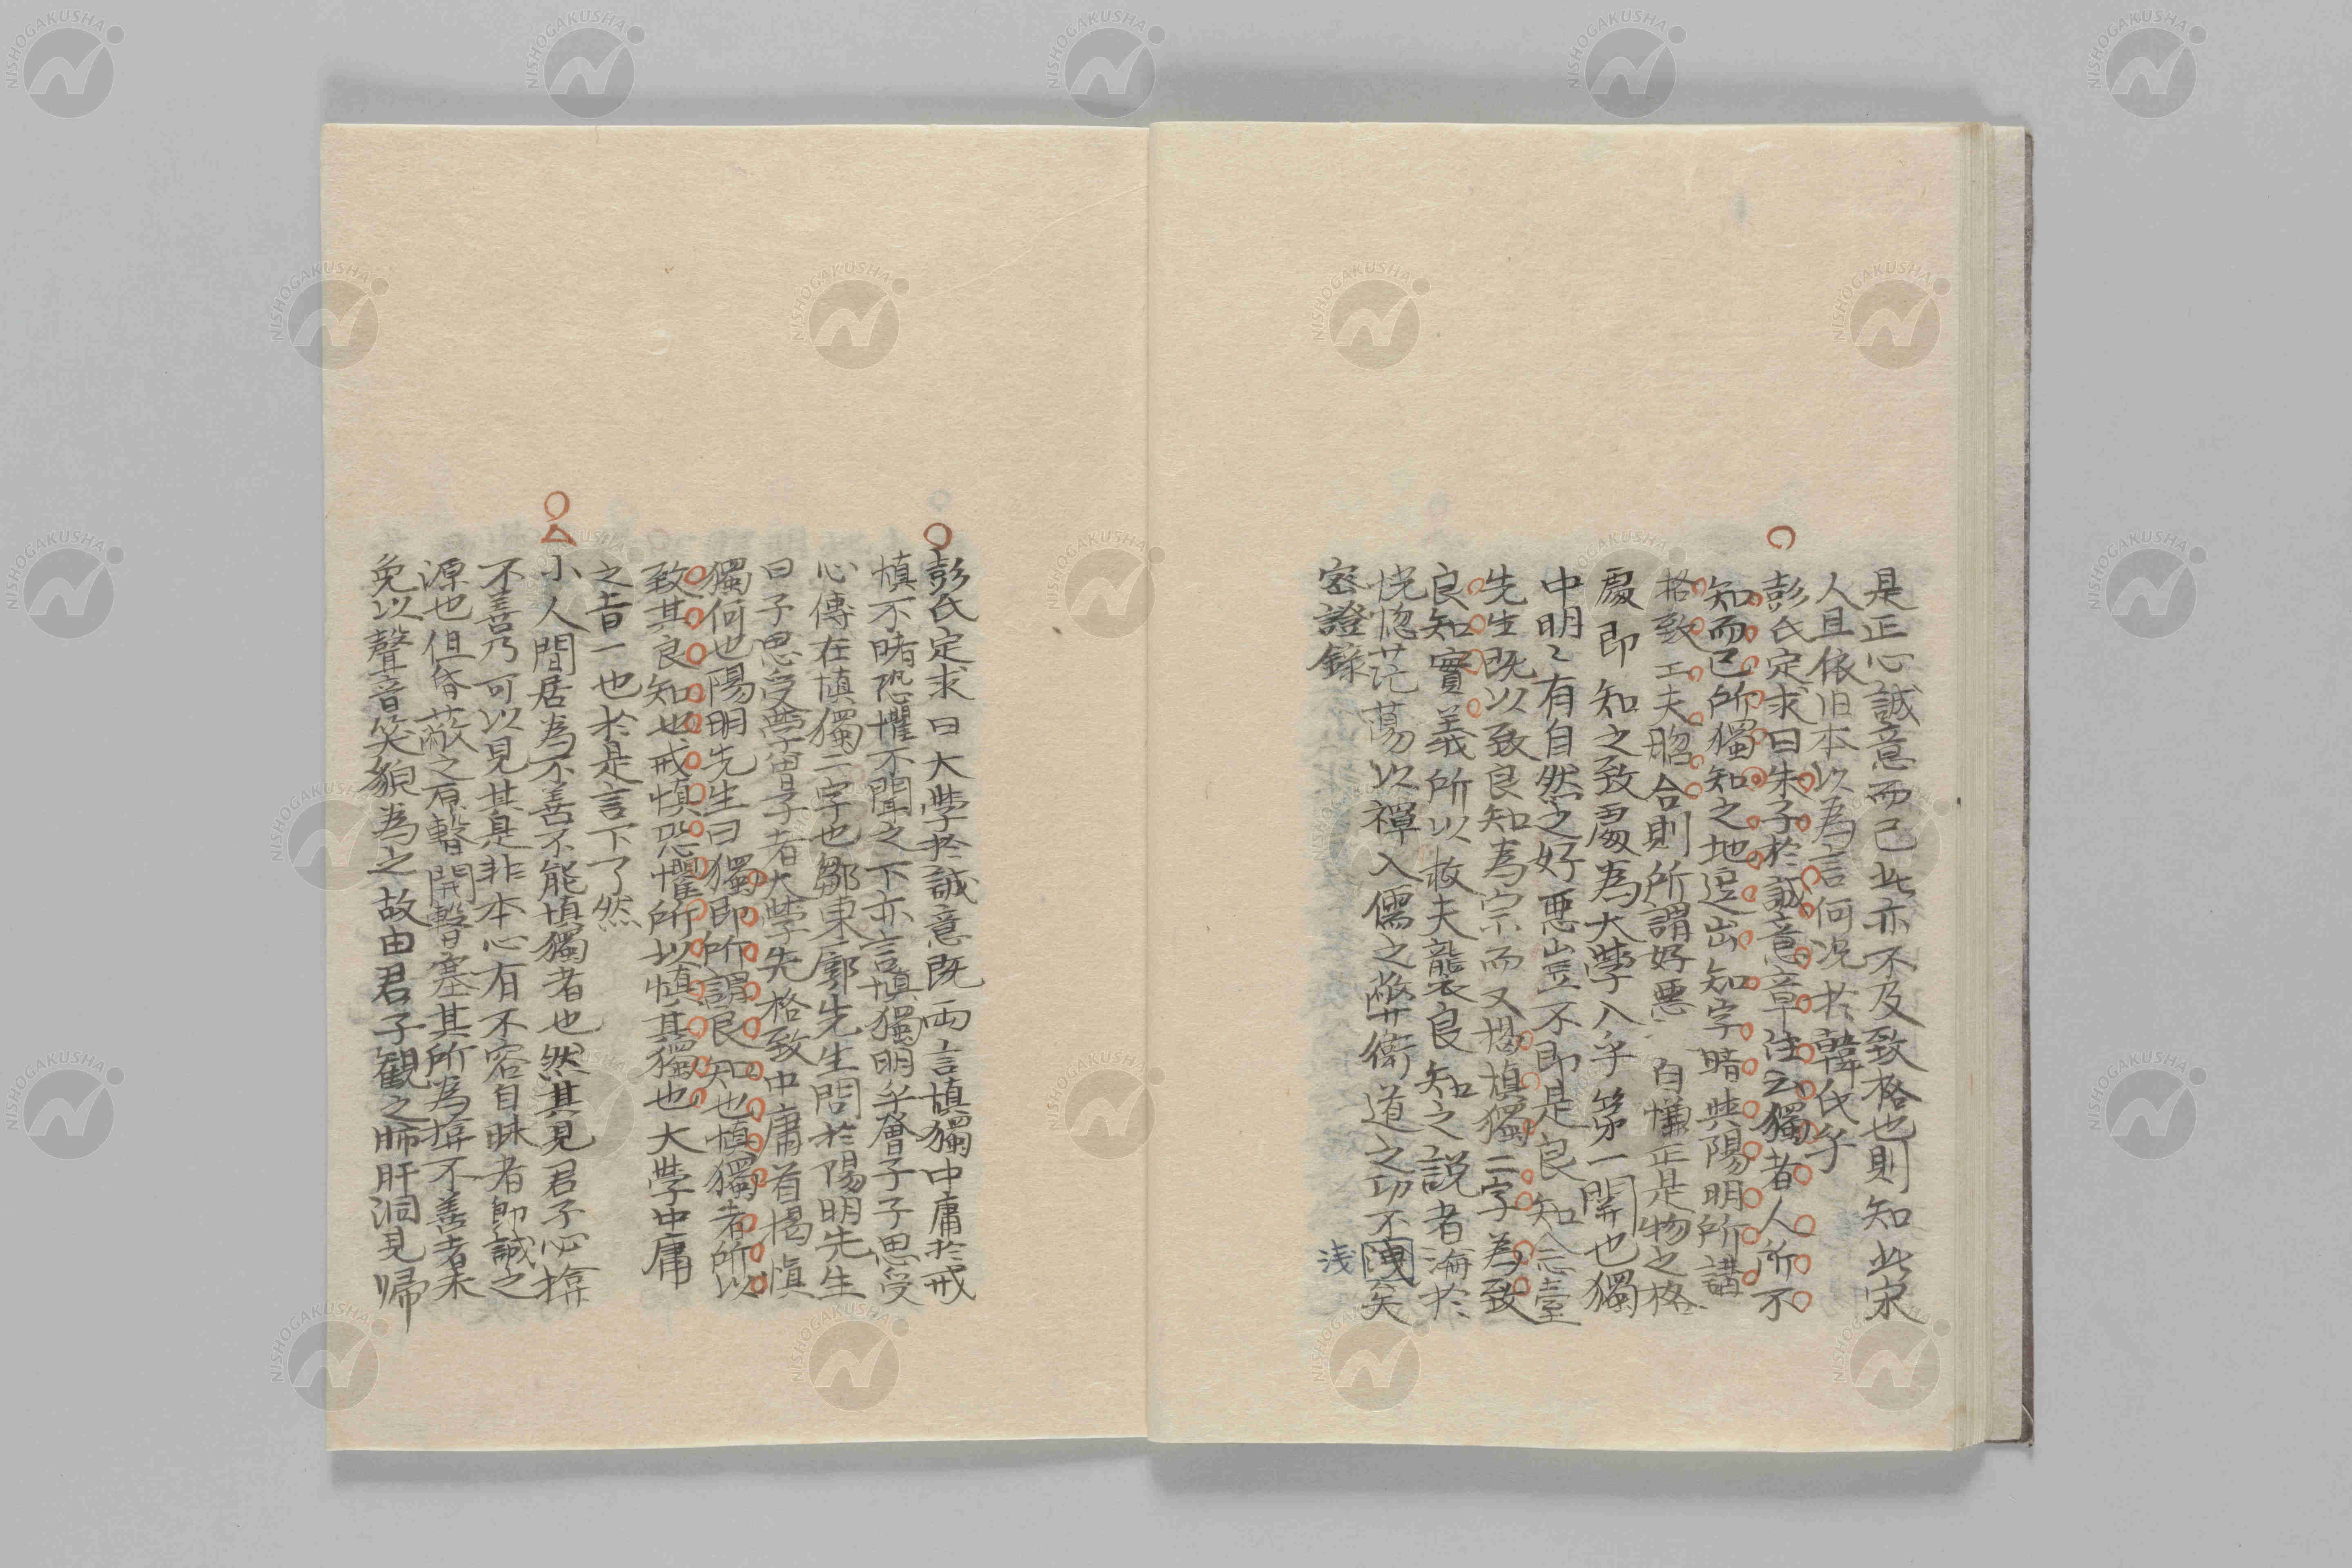 是正心誠意而已此亦不及致格也則知此宋
人且依旧本以為言何況於韓氏乎
彭氏定求曰朱子於誠意章注云獨者人所不
知而己所獨知之地逗出知字暗與陽明所講
格致工夫脗合則所謂好惡自慊正是物之格
處即知之致處為大學入手第一關也獨
中明〻有自然之好惡豈不即是良知念臺
先生既以致良知為宗而又揭慎獨二字為致
良知實義所以救夫襲良知之說者淪於
恍惚茫蕩以禪入儒之弊衛道之功不洩矣
浅
密證錄
彭氏定求曰大學於誠意既両言慎獨中庸於戒
慎不睹恐懼不聞之下亦言慎獨明乎曾子子思受
心傳在慎獨二字也鄒東廓先生問於陽明先生
曰子思受學曾子者大學先格致中庸首揭慎
獨何也陽明先生曰獨即所謂良知也慎獨者所以
致其良知也戒慎恐懼所以慎其獨也大學中庸
之旨一也於是言下了然
小人間居為不善不能慎獨者也然其見君子必揜
不善乃可以見其是非本心有不容自昧者即誠之
源也但昏蔽之厚翳開翳塞其所為揜不善者未
免以聲音笑貌為之故由君子観之肺肝洞見帰
NISHOGAKUSHA